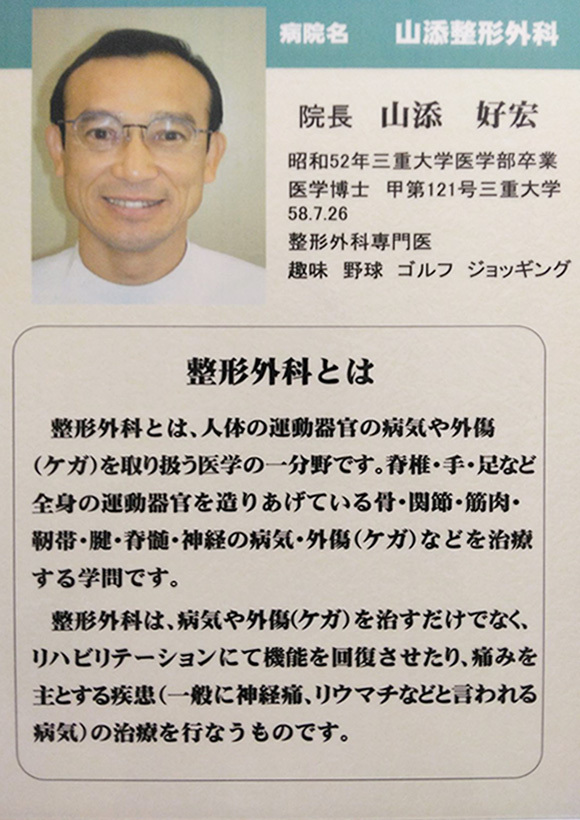 病院名 山添整形外科
院長 山添 好宏
昭和52年三重大学医学部卒業
医学博士 甲第121号三重大学
58.7.26
整形外科専門医
趣味 野球 ゴルフ ジョッギング
整形外科とは
整形外科とは、人体の運動器官の病気や外傷
(ケガ)を取り扱う医学の一分野です。脊椎・手・足など
全身の運動器官を造りあげている骨・関節・筋肉・
靭帯・腱・脊髄・神経の病気・外傷(ケガ)などを治療
する学問です。
整形外科は、病気や外傷(ケガ)を治すだけでなく、
リハビリテーションにて機能を回復させたり、痛みを
主とする疾患(一般に神経痛、リウマチなどと言われる
病気)の治療を行なうものです。